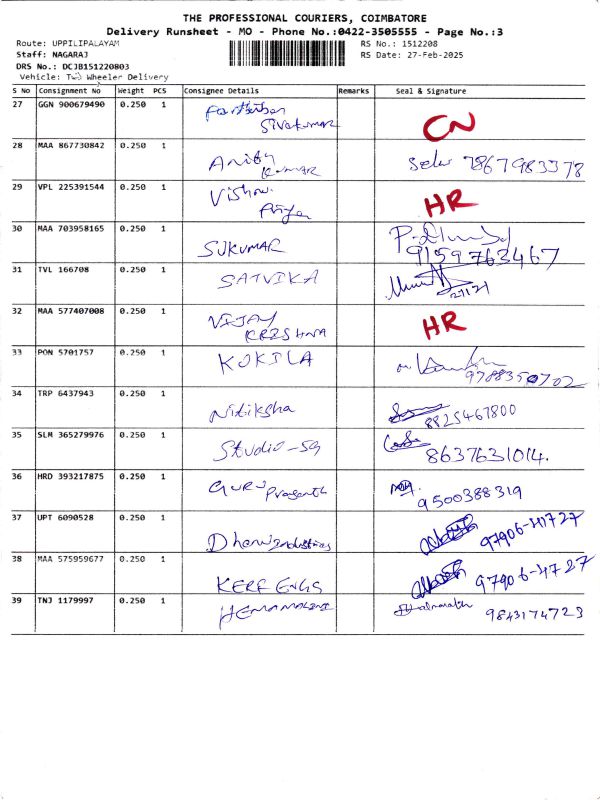 THE PROFESSIONAL COURIERS, COIMBATORE
Delivery Runsheet - MO - Phone No.:0422-3505555 - Page No.:3
Route: UPPILIPALAYAM RS No.: 1512208
Staff: NAGARAJ RS Date: 27-Feb-2025
DRS No.: DCJB151220803
Vehicle: Two Wheeler Delivery
S No Consignment No Weight PCS Consignee Details Remarks Seal & Signature
27 GGN 900679490 0.250 1
Sivakumar CN
28 MAA 867730842 0.250 1
Kumar 7867983378
29 VPL 225391544 0.250 1
HR
30 MAA 703958165 0.250 1
SUKUMAR 9159763467
31 TVL 166708 0.250 1
SATVIKA
32 MAA 577407008 0.250 1
VIJAY
KRISHNA HR
33 PON 5701757 0.250 1
KOKILA
34 TRP 6437943 0.250 1
Nitiksha 8825467800
35 SLM 365279976 0.250 1
Studio-sg 8637631014.
36 HRD 393217875 0.250 1
GURU Prasanth 9500388319
37 UPT 6090528 0.250 1
Dhanu Industries
38 MAA 575959677 0.250 1
KERF ENGS
39 TNJ 1179997 0.250 1
HEMAMALINI 9843174723